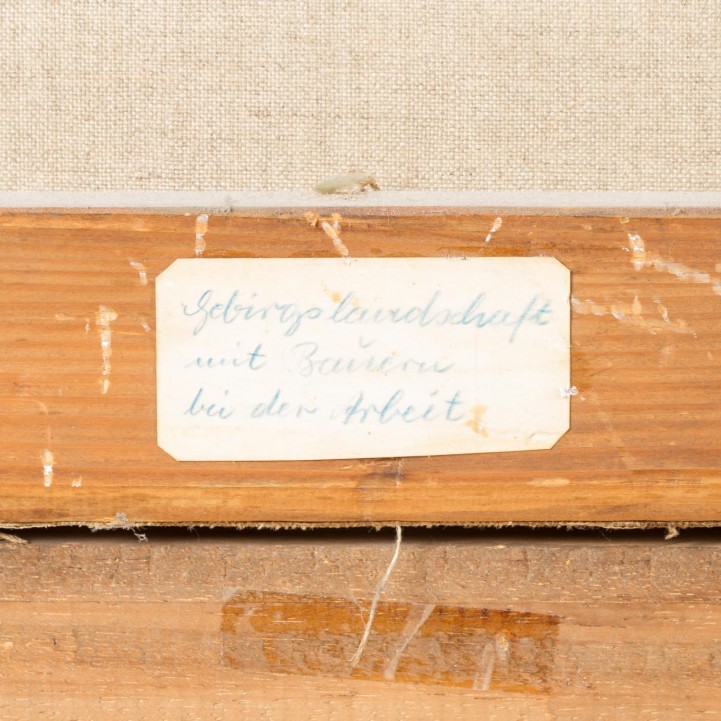 Gebirgslandschaft
mit Bauern
bei der Arbeit